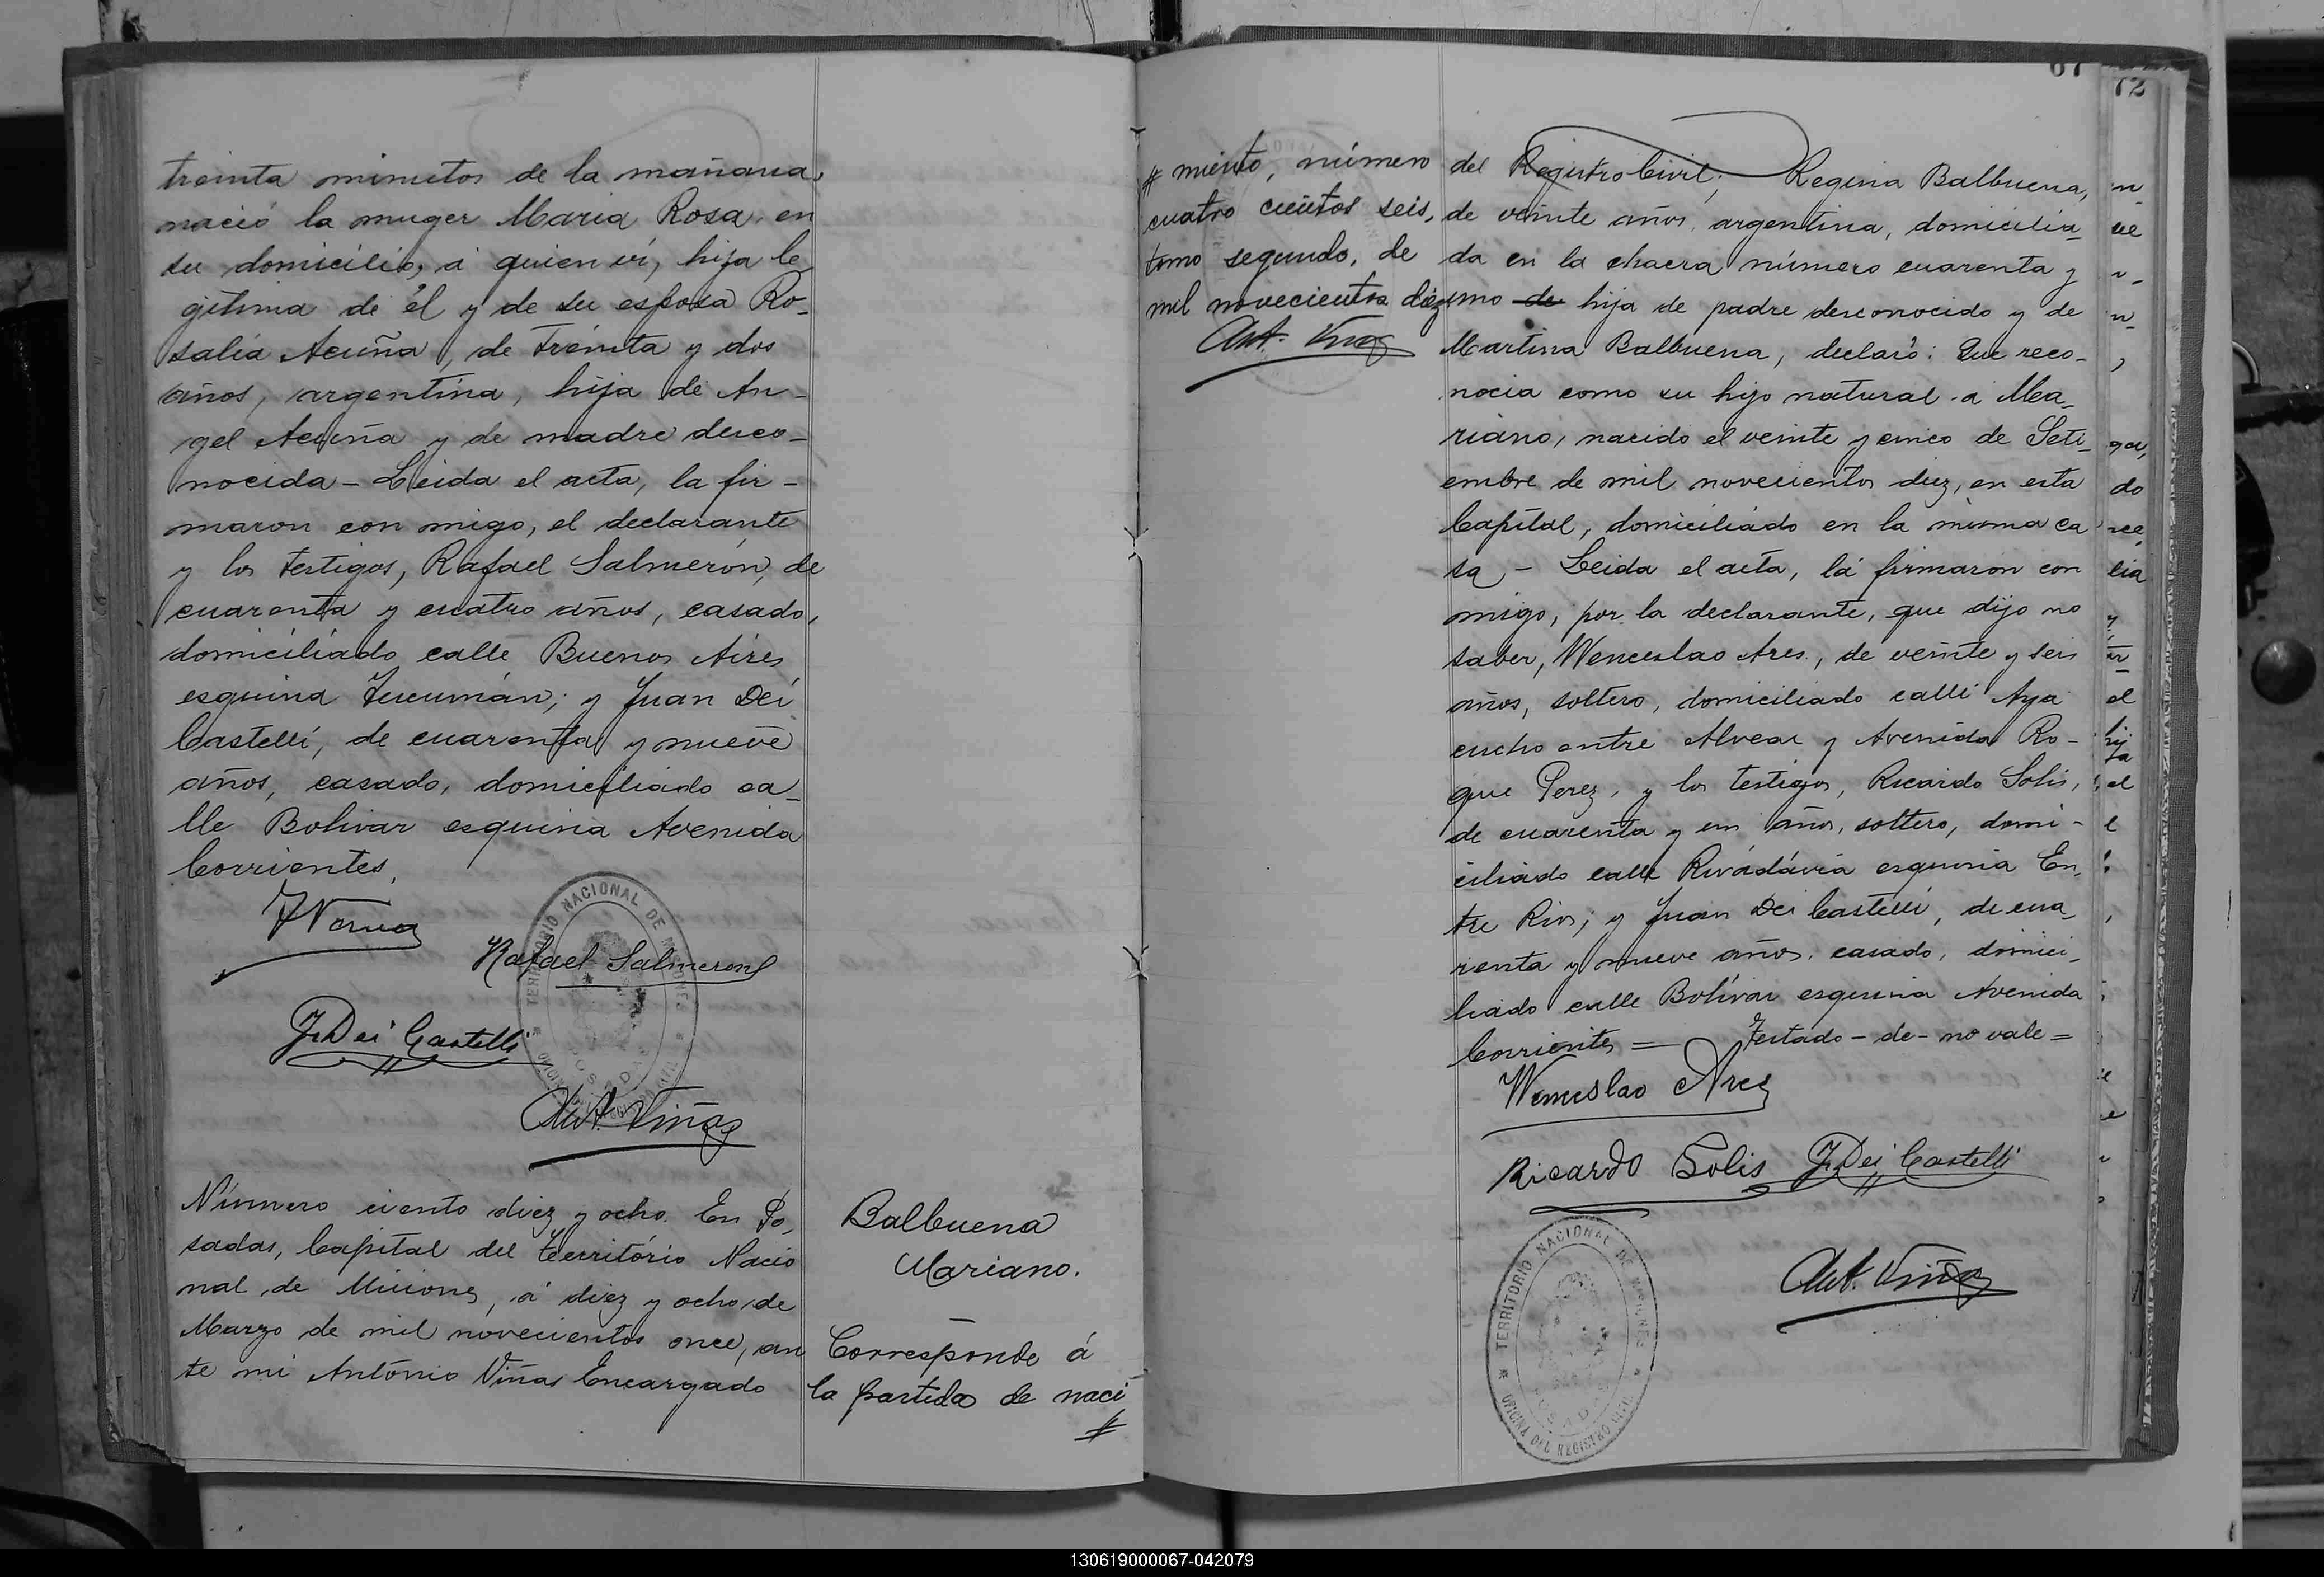 treinta minutos de la mañana,
nació la muger Maria Rosa, en
su domicilio, á quien vi, hija le
gitima de él y de su esposa Ro-
salia Acuña, de treinta y dos
años, argentina, hija de An-
gel Acuña y de madre desco-
nocida - Leida el acta, la fir-
maron con migo, el declarante
y los testigos, Rafael Salmerón, de
cuarenta y cuatro años, casado,
domiciliado calle Buenos Aires
esquina Tucumán; y Juan Dei
Castelli, de cuarenta y nueve
años, casado, domiciliado ca-
lle Bolivar esquina Avenida
Corrientes.
Rafael Salmeron
J. Dei Castelli
TERRITORIO NACIONAL DE MISIONES
Ant. Viñas
Número ciento diez y ocho. En Po-
sadas, Capital del Território Nacio
nal de Misiones, á diez y ocho de
Marzo de mil novecientos once, an
te mi António Viñas Encargado
Balbuena
Mariano.
Corresponde á
la partida de naci
#
# miento, número
cuatro cientos seis,
tomo segundo, de
mil novecientos diez
Ant. Viñas
67
del Registro Civil; Regina Balbuena,
de veinte años, argentina, domicilia-
da en la chacra número cuarenta y
uno de hija de padre desconocido y de
Martina Balbuena, declaró: Que reco-
nocia como su hijo natural á Ma-
riano, nacido el veinte y cinco de Seti-
embre de mil novecientos diez, en esta
Capital, domiciliado en la misma ca
sa - Leida el acta, la firmaron con
migo, por la declarante, que dijo no
saber, Wenceslao Ares, de veinte y seis
años, soltero, domiciliado calle Aya
cucho entre Alvear y Avenida Ro-
que Perez, y los testigos, Ricardo Solis,
de cuarenta y un años, soltero, domi-
ciliado calle Rivadávia esquina En-
tre Rios; y Juan Dei Castelli, de cua-
renta y nueve años, casado, domici-
liado calle Bolívar esquina Avenida
Corrientes = Testado - de - no vale =
Wenceslao Ares
Ricardo Solis J. Dei Castelli
TERRITORIO NACIONAL DE MISIONES
POSADAS
OFICINA DEL REGISTRO CIVIL
Ant. Viñas
72
130619000067-042079